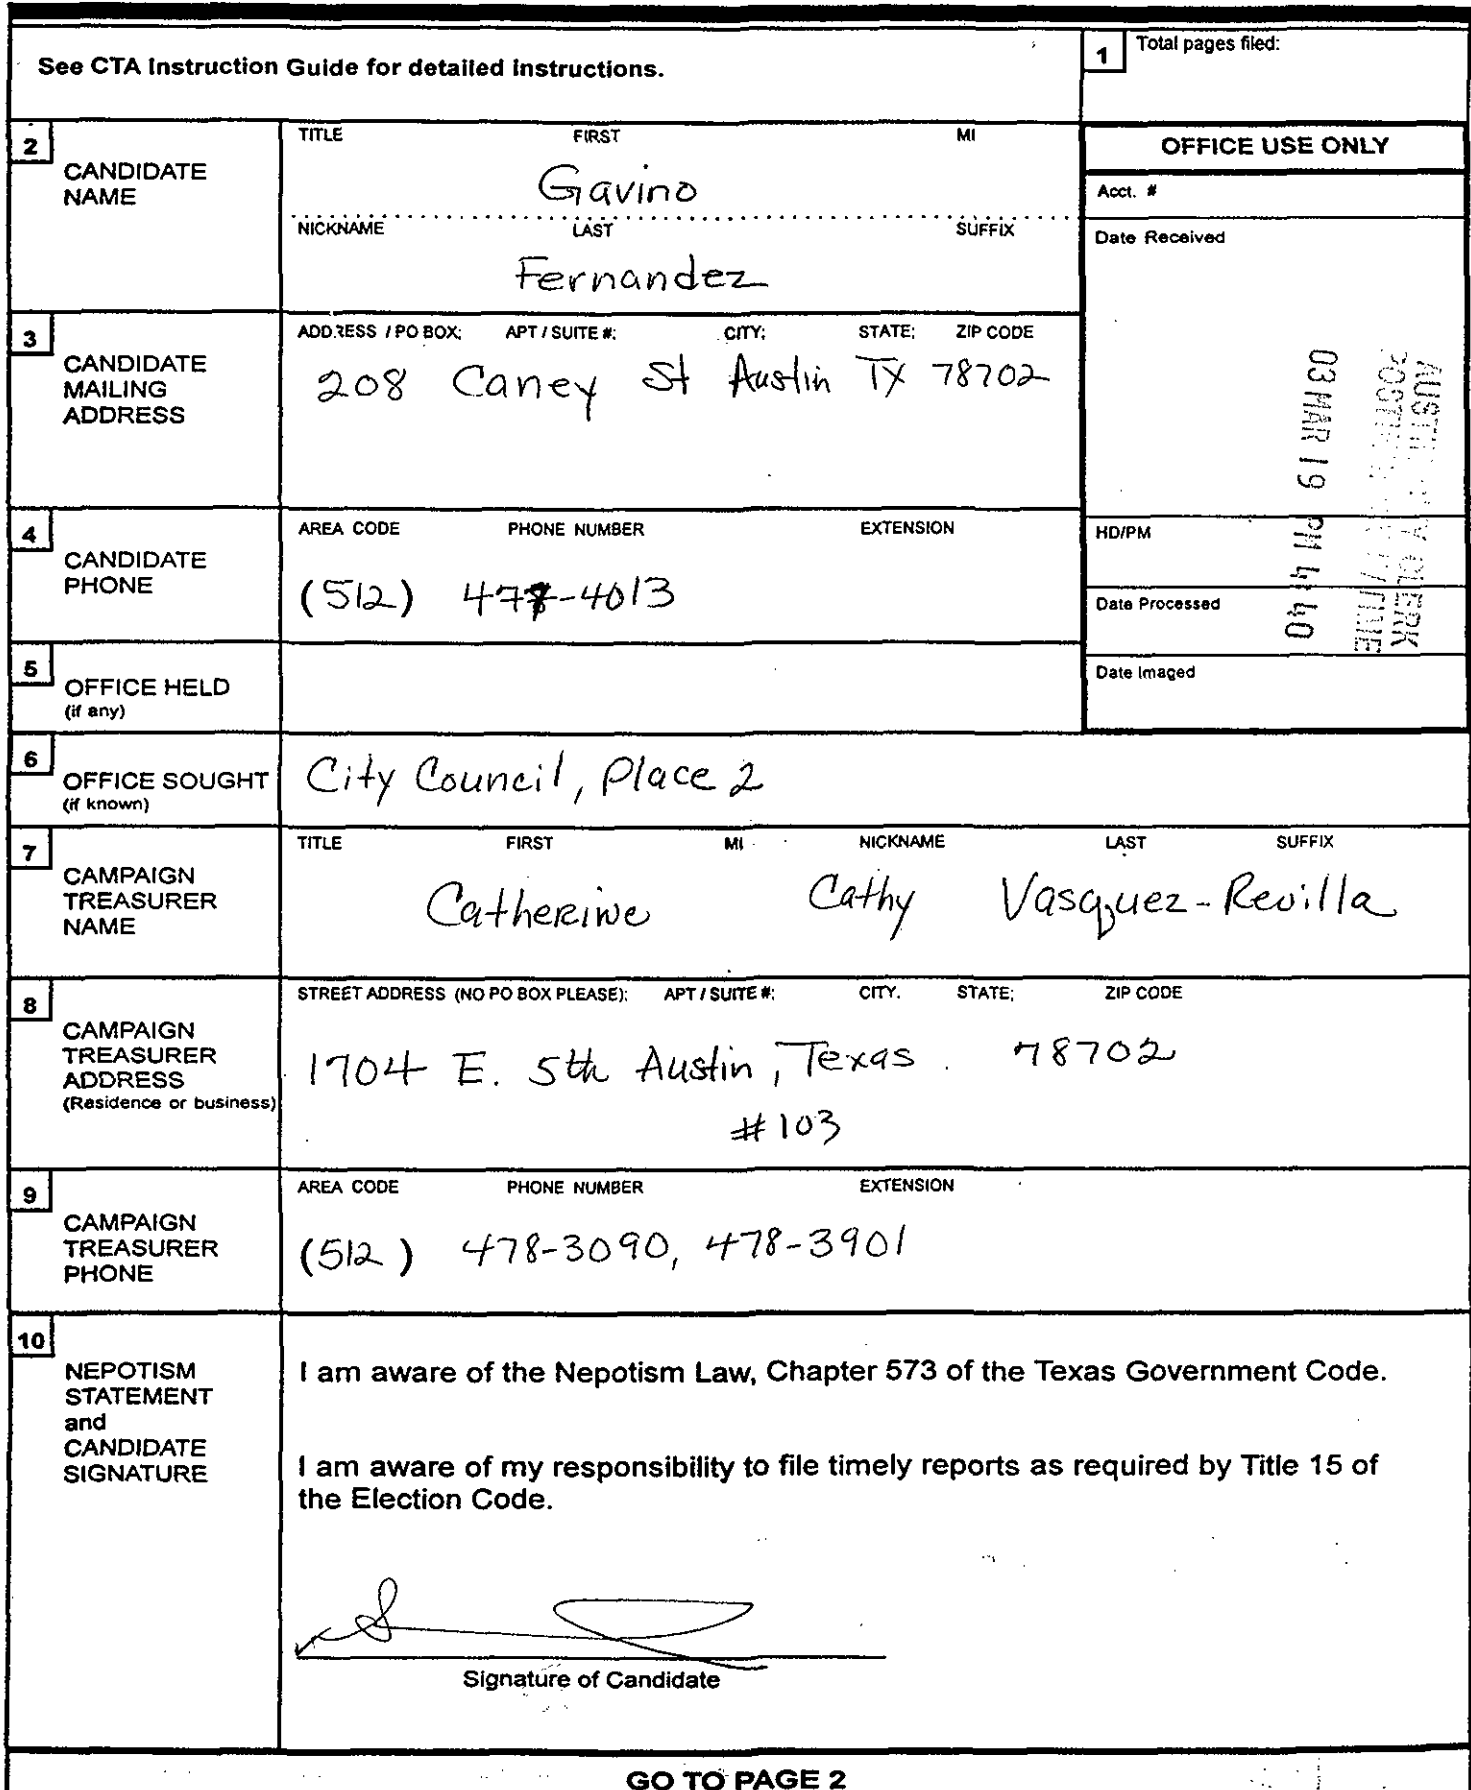 See CTA Instruction Guide for detailed instructions.
1 Total pages filed:
2 CANDIDATE NAME
TITLE FIRST MI
Gavino
NICKNAME LAST SUFFIX
Fernandez
OFFICE USE ONLY
Acct. #
Date Received
AUSTIN CITY CLERK
03 MAR 19 PM 4 40
HD/PM
Date Processed
Date Imaged
3 CANDIDATE MAILING ADDRESS
ADDRESS / PO BOX; APT / SUITE #; CITY; STATE; ZIP CODE
208 Caney St Austin TX 78702
4 CANDIDATE PHONE
AREA CODE PHONE NUMBER EXTENSION
(512) -4013
5 OFFICE HELD
(if any)
6 OFFICE SOUGHT
(if known)
City Council, Place 2
7 CAMPAIGN TREASURER NAME
TITLE FIRST MI NICKNAME LAST SUFFIX
Catherine Cathy Vasquez-Revilla
8 CAMPAIGN TREASURER ADDRESS
(Residence or business)
STREET ADDRESS (NO PO BOX PLEASE); APT / SUITE #; CITY. STATE; ZIP CODE
1704 E. 5th Austin, Texas. 78702
#103
9 CAMPAIGN TREASURER PHONE
AREA CODE PHONE NUMBER EXTENSION
(512) 478-3090, 478-3901
10 NEPOTISM STATEMENT and CANDIDATE SIGNATURE
I am aware of the Nepotism Law, Chapter 573 of the Texas Government Code.
I am aware of my responsibility to file timely reports as required by Title 15 of
the Election Code.
Signature of Candidate
GO TO PAGE 2